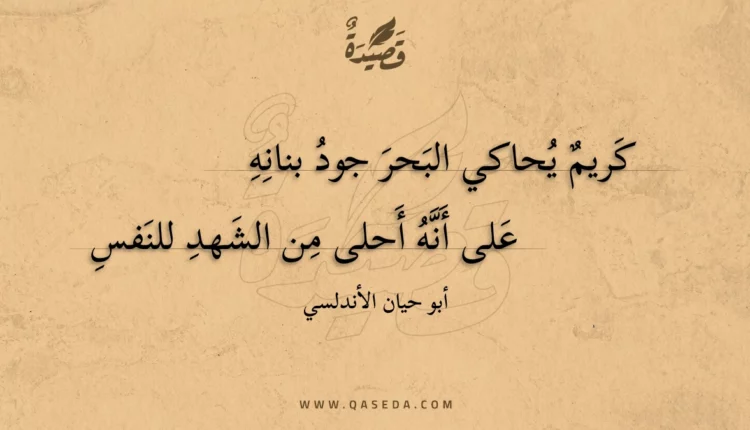 قَصِيدَةٌ
كَريمٌ يُحاكي البَحرَ جودُ بنانِهِ
عَلى أَنَّهُ أَحلى مِن الشَهدِ للنَفسِ
أبو حيان الأندلسي
WWW.QASEDA.COM